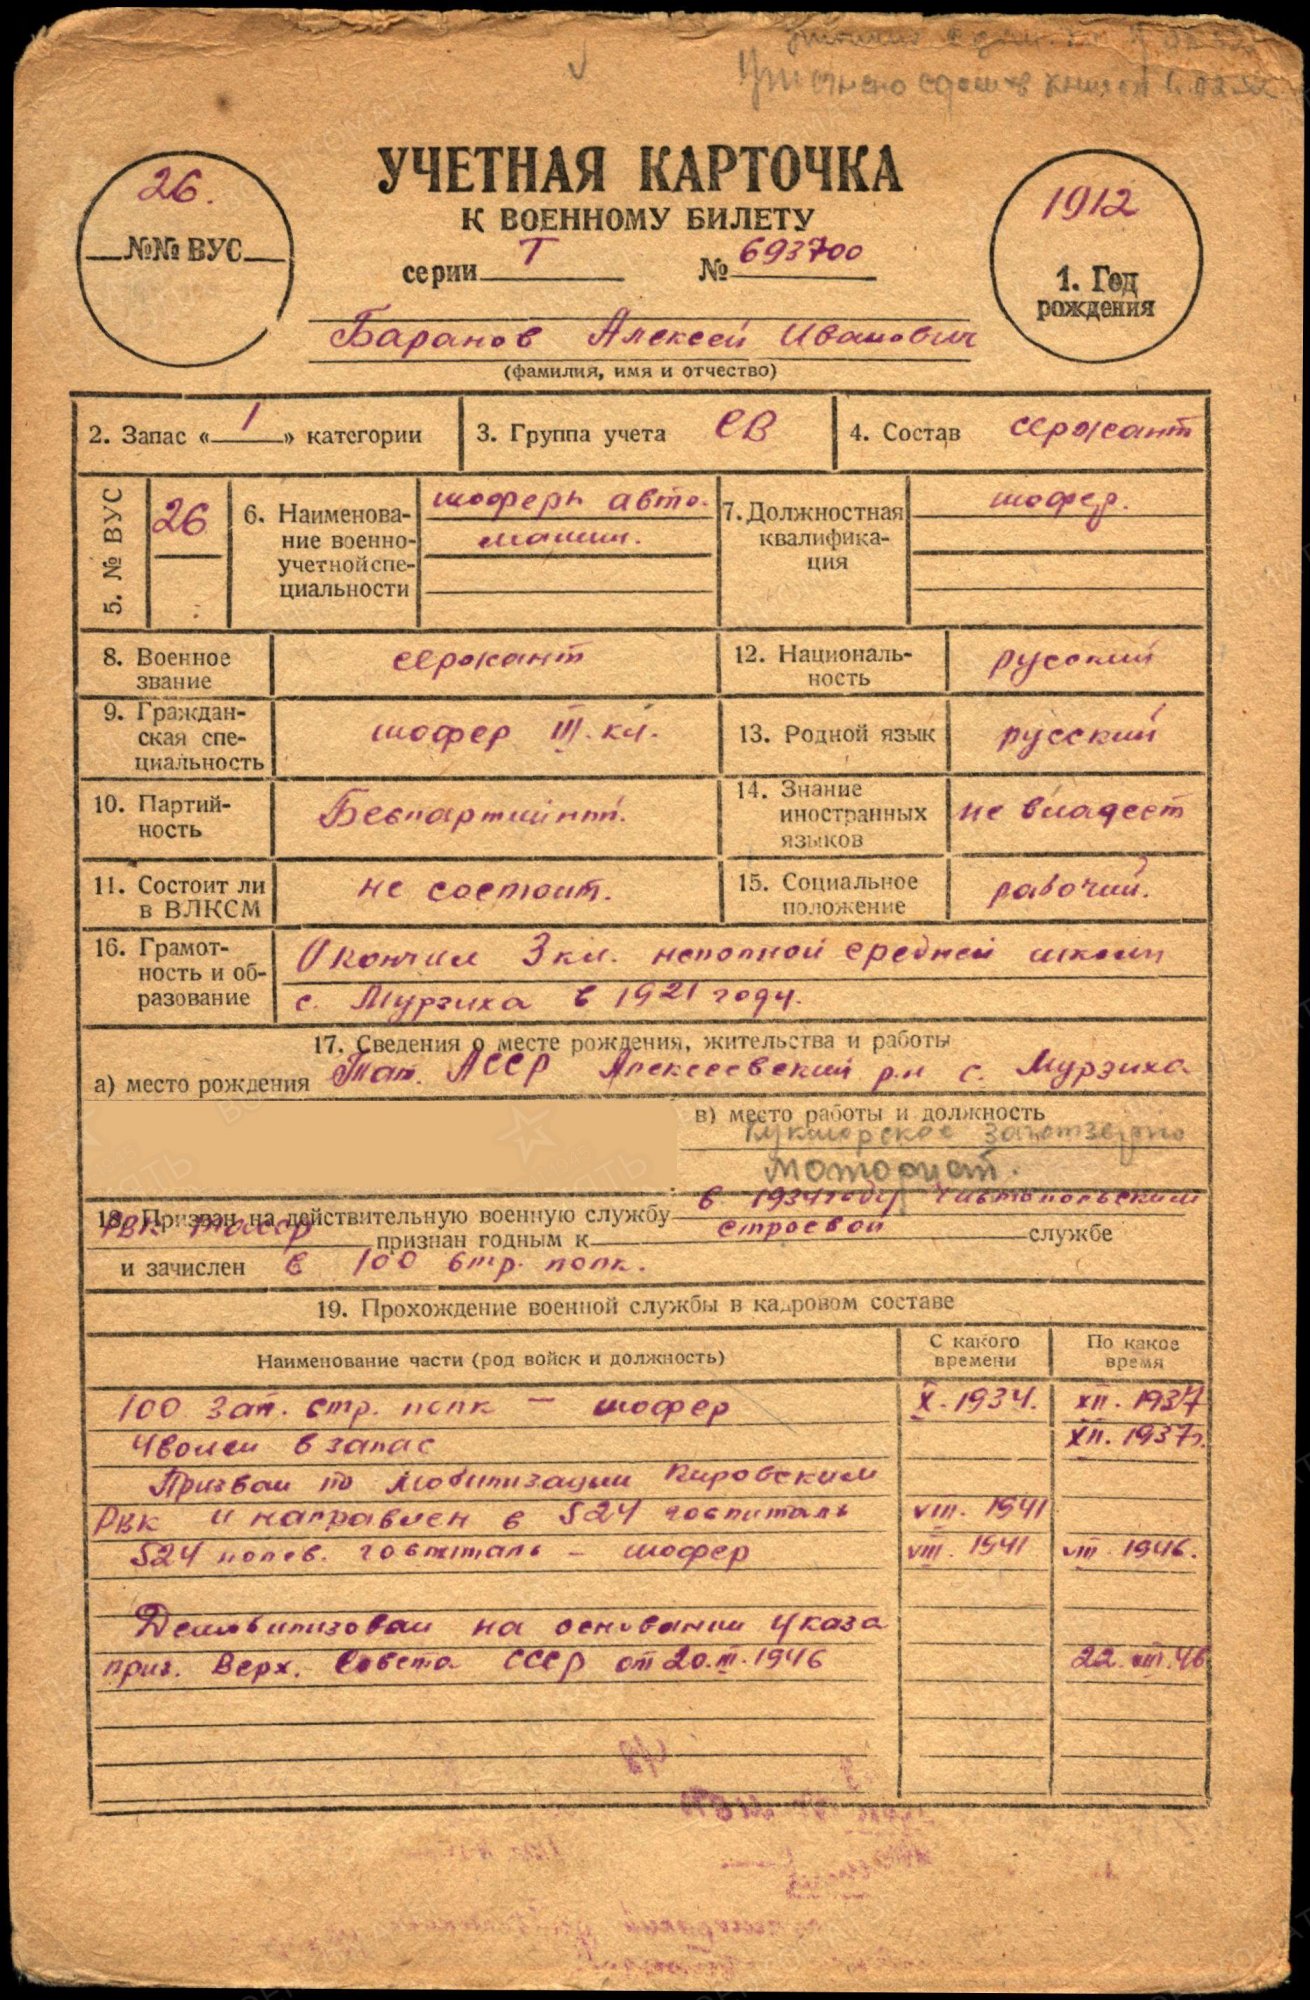 Уточнено
26.
№№ ВУС
УЧЕТНАЯ КАРТОЧКА
К ВОЕННОМУ БИЛЕТУ
серии Т № 693700
1912
1. Год рождения
Баранов Алексей Иванович
(фамилия, имя и отчество)
2. Запас « 1 » категории
3. Группа учета СВ
4. Состав сержант
5. № ВУС 26
6. Наименова-
ние военно-
учетной спе-
циальности
шоферы авто-
машин.
7. Должностная
квалифика-
ция
шофер.
8. Военное
звание
сержант
12. Националь-
ность
русский
9. Граждан-
ская спе-
циальность
шофер III. кл.
13. Родной язык русский
10. Партий-
ность
Беспартийный.
14. Знание
иностранных
языков
не владеет
11. Состоит ли
в ВЛКСМ
не состоит.
15. Социальное
положение
рабочий.
16. Грамот-
ность и об-
разование
Окончил 3 кл. неполной средней школы
с. Мурзиха в 1921 году.
17. Сведения о месте рождения, жительства и работы
а) место рождения Тат. АССР Алексеевский р-н с. Мурзиха
в) место работы и должность
Кукморское заготзерно
моторист.
18. Призван на действительную военную службу в 1934 году Чистопольским
РВК ТАССР признан годным к строевой службе
и зачислен в 100 стр. полк.
19. Прохождение военной службы в кадровом составе
Наименование части (род войск и должность)
С какого
времени
По какое
время
100 зап. стр. полк — шофер X. 1934. XII. 1937
Уволен в запас XII. 1937г.
Призван по мобилизации Кировским
РВК и направлен в 524 госпиталь VIII. 1941
524 полев. госпиталь — шофер VIII. 1941 VIII. 1946.
Демобилизован на основании Указа
през. Верх. Совета СССР от 20.III.1946 22.VIII.46